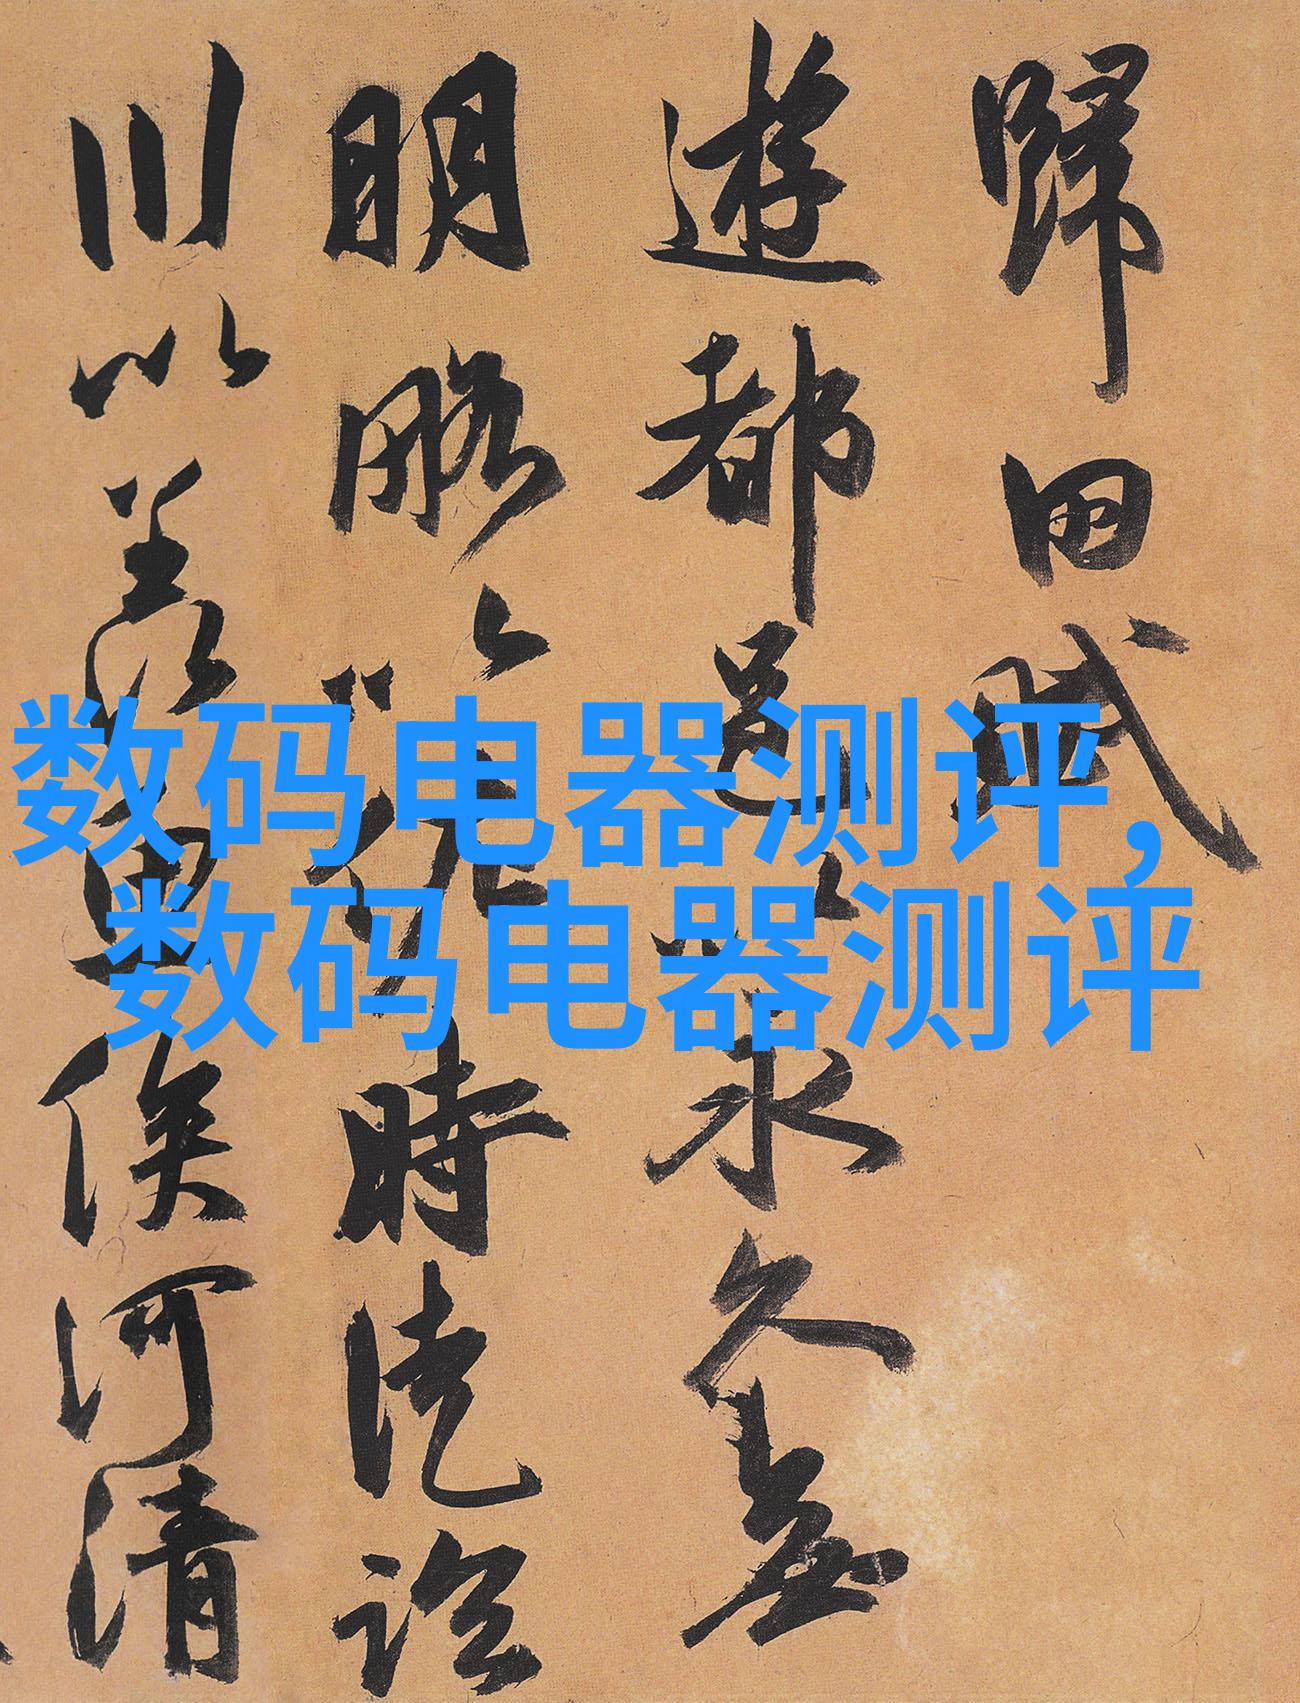 歸田賦
遊都邑以永久無
明略以佐時徒臨
川以羨魚俟河清
数码电器测评,
数码电器测评